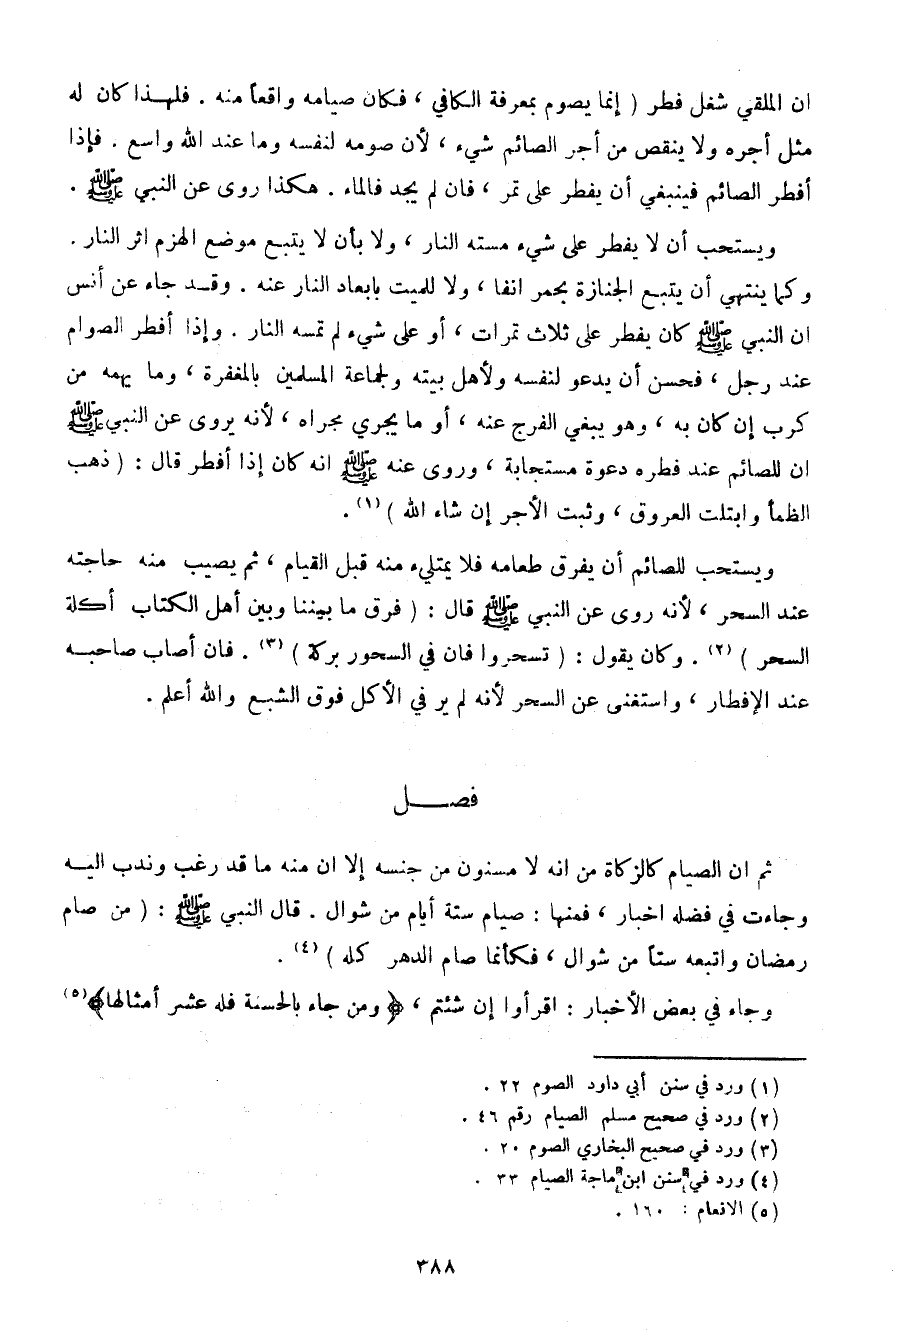 ان الملقي شغل فطر ( إنما يصوم بمعرفة الكافي ، فكان صيامه واقعاً منه . فلهذا كان له
مثل أجره ولا ينقص من أجر الصائم شيء ، لأن صومه لنفسه وما عند الله واسع . فإذا
أفطر الصائم فينبغي أن يفطر على تمر ، فان لم يجد فالماء . هكذا روى عن النبي ﷺ .
ويستحب أن لا يفطر على شيء مسته النار ، ولا بأن لا يتبع موضع الهزم اثر النار .
وكما ينتهي أن يتبع الجنازة بجمر انفا ، ولا للميت بابعاد النار عنه . وقد جاء عن أنس
ان النبي ﷺ كان يفطر على ثلاث تمرات ، أو على شيء لم تمسه النار . وإذا أفطر الصوام
عند رجل ، فحسن أن يدعو لنفسه ولأهل بيته ولجماعة المسلمين بالمغفرة ، وما يهمه من
كرب إن كان به ، وهو يبغي الفرج عنه ، أو ما يجري مجراه ، لأنه يروى عن النبي ﷺ
ان للصائم عند فطره دعوة مستجابة ، وروى عنه ﷺ انه كان إذا أفطر قال : ( ذهب
الظمأ وابتلت العروق ، وثبت الأجر إن شاء الله ) (١) .
ويستحب للصائم أن يفرق طعامه فلا يمتلیء منه قبل القيام ، ثم يصيب منه حاجته
عند السحر ، لأنه روى عن النبي ﷺ قال : ( فرق ما بيننا وبين أهل الكتاب أكلة
السحر ) (٢) . وكان يقول : ( تسحروا فان في السحور بركة ) (٣) . فان أصاب صاحبه
عند الإفطار ، واستغنى عن السحر لأنه لم ير في الأكل فوق الشبع والله أعلم .
فصل
ثم ان الصيام كالزكاة من انه لا مسنون من جنسه إلا ان منه ما قد رغب وندب اليه
وجاءت في فضله اخبار ، فمنها : صيام ستة أيام من شوال . قال النبي ﷺ : ( من صام
رمضان واتبعه ستاً من شوال ، فكأنما صام الدهر كله ) (٤) .
وجاء في بعض الأخبار : اقرأوا إن شئتم ، ﴿ ومن جاء بالحسنة فله عشر أمثالها﴾ (٥)
(١) ورد في سنن أبي داود الصوم ٢٢ .
(٢) ورد في صحيح مسلم الصيام رقم ٤٦ .
(٣) ورد في صحيح البخاري الصوم ٢٠ .
(٤) ورد في سنن ابن ماجة الصيام ٣٣ .
(٥) الانعام : ١٦٠ .
٣٨٨